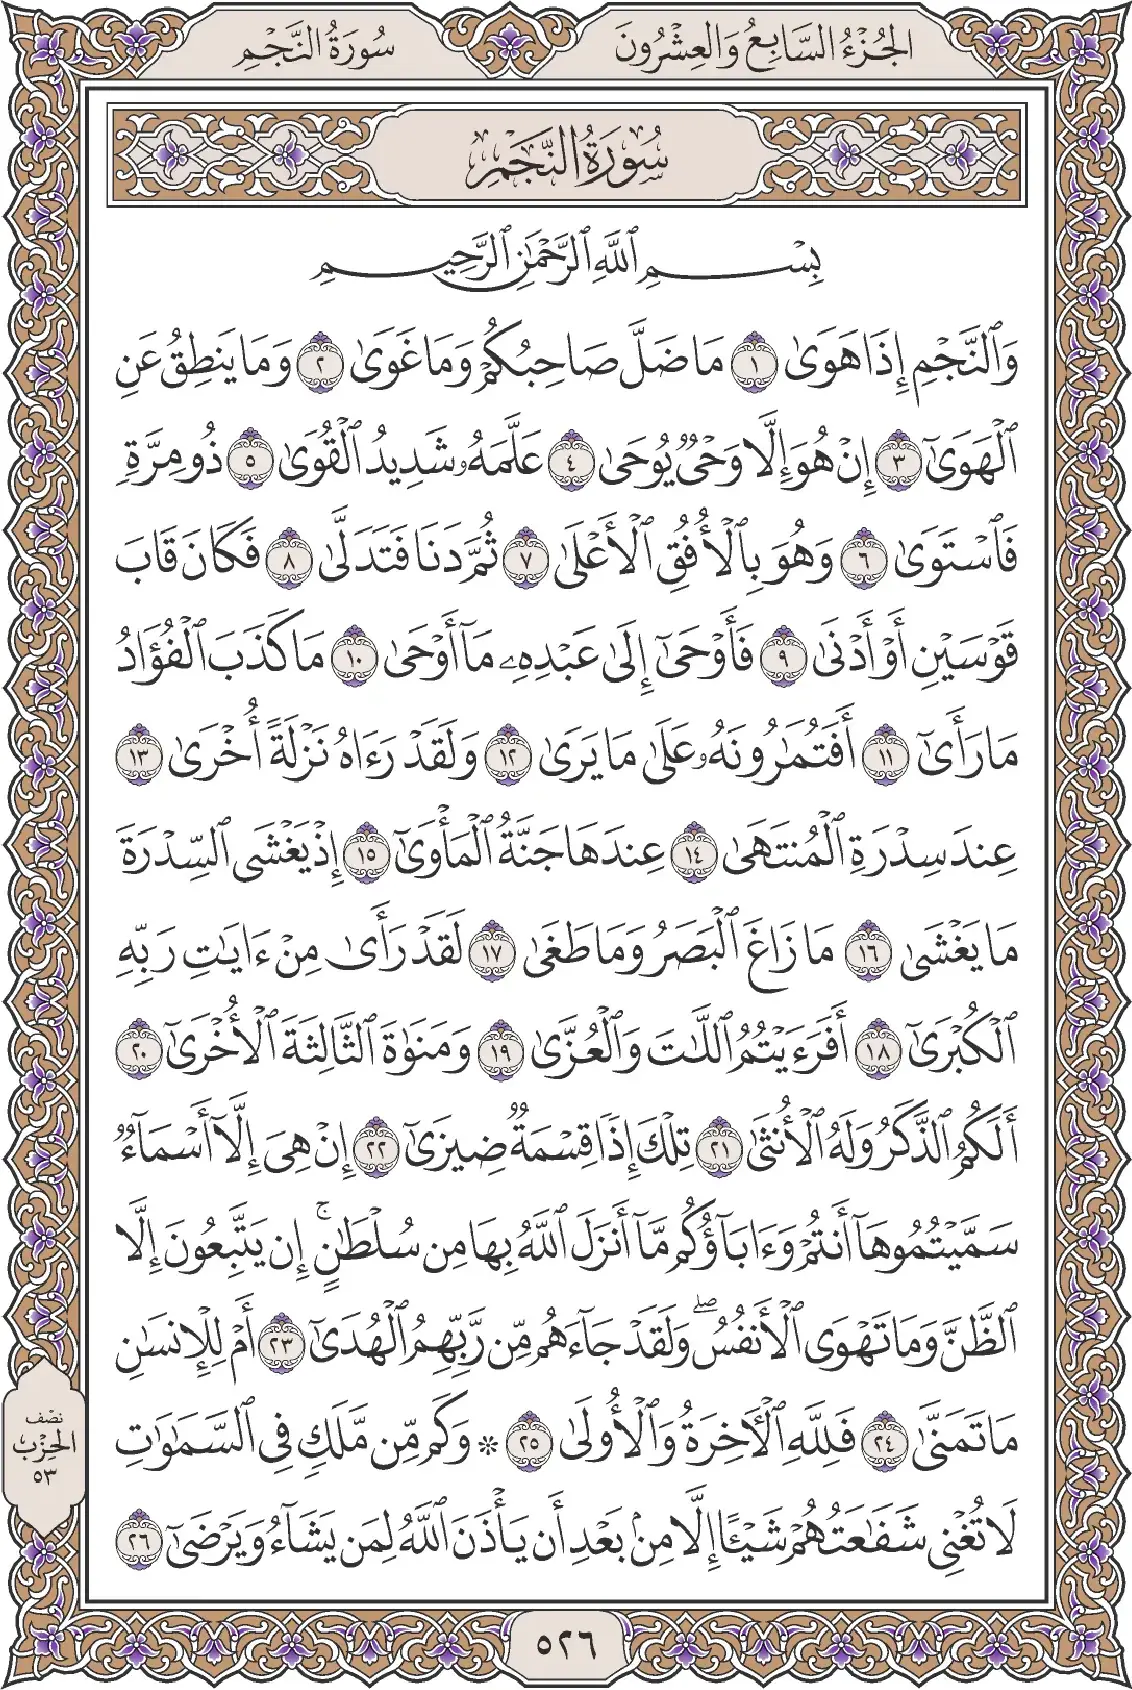 الجُزْءُ السَّابِعُ وَالعِشْرُونَ
سُورَةُ النَّجْمِ
سُورَةُ النَّجْمِ
بِسْمِ ٱللَّهِ ٱلرَّحْمَٰنِ ٱلرَّحِيمِ
وَٱلنَّجْمِ إِذَا هَوَىٰ ١ مَا ضَلَّ صَاحِبُكُمْ وَمَا غَوَىٰ ٢ وَمَا يَنطِقُ عَنِ
ٱلْهَوَىٰٓ ٣ إِنْ هُوَ إِلَّا وَحْىٌ يُوحَىٰ ٤ عَلَّمَهُۥ شَدِيدُ ٱلْقُوَىٰ ٥ ذُو مِرَّةٍ
فَٱسْتَوَىٰ ٦ وَهُوَ بِٱلْأُفُقِ ٱلْأَعْلَىٰ ٧ ثُمَّ دَنَا فَتَدَلَّىٰ ٨ فَكَانَ قَابَ
قَوْسَيْنِ أَوْ أَدْنَىٰ ٩ فَأَوْحَىٰٓ إِلَىٰ عَبْدِهِۦ مَآ أَوْحَىٰ ١٠ مَا كَذَبَ ٱلْفُؤَادُ
مَا رَأَىٰٓ ١١ أَفَتُمَٰرُونَهُۥ عَلَىٰ مَا يَرَىٰ ١٢ وَلَقَدْ رَءَاهُ نَزْلَةً أُخْرَىٰ ١٣
عِندَ سِدْرَةِ ٱلْمُنتَهَىٰ ١٤ عِندَهَا جَنَّةُ ٱلْمَأْوَىٰٓ ١٥ إِذْ يَغْشَى ٱلسِّدْرَةَ
مَا يَغْشَىٰ ١٦ مَا زَاغَ ٱلْبَصَرُ وَمَا طَغَىٰ ١٧ لَقَدْ رَأَىٰ مِنْ ءَايَٰتِ رَبِّهِ
ٱلْكُبْرَىٰٓ ١٨ أَفَرَءَيْتُمُ ٱللَّٰتَ وَٱلْعُزَّىٰ ١٩ وَمَنَوٰةَ ٱلثَّالِثَةَ ٱلْأُخْرَىٰٓ ٢٠
أَلَكُمُ ٱلذَّكَرُ وَلَهُ ٱلْأُنثَىٰ ٢١ تِلْكَ إِذًا قِسْمَةٌ ضِيزَىٰٓ ٢٢ إِنْ هِىَ إِلَّآ أَسْمَآءٌ
سَمَّيْتُمُوهَآ أَنتُمْ وَءَابَآؤُكُم مَّآ أَنزَلَ ٱللَّهُ بِهَا مِن سُلْطَٰنٍ ۚ إِن يَتَّبِعُونَ إِلَّا
ٱلظَّنَّ وَمَا تَهْوَى ٱلْأَنفُسُ ۖ وَلَقَدْ جَآءَهُم مِّن رَّبِّهِمُ ٱلْهُدَىٰٓ ٢٣ أَمْ لِلْإِنسَٰنِ
مَا تَمَنَّىٰ ٢٤ فَلِلَّهِ ٱلْءَاخِرَةُ وَٱلْأُولَىٰ ٢٥ * وَكَم مِّن مَّلَكٍ فِى ٱلسَّمَٰوَٰتِ
لَا تُغْنِى شَفَٰعَتُهُمْ شَيْـًٔا إِلَّا مِنۢ بَعْدِ أَن يَأْذَنَ ٱللَّهُ لِمَن يَشَآءُ وَيَرْضَىٰٓ ٢٦
نصف
الحزب
٥٣
٥٢٦